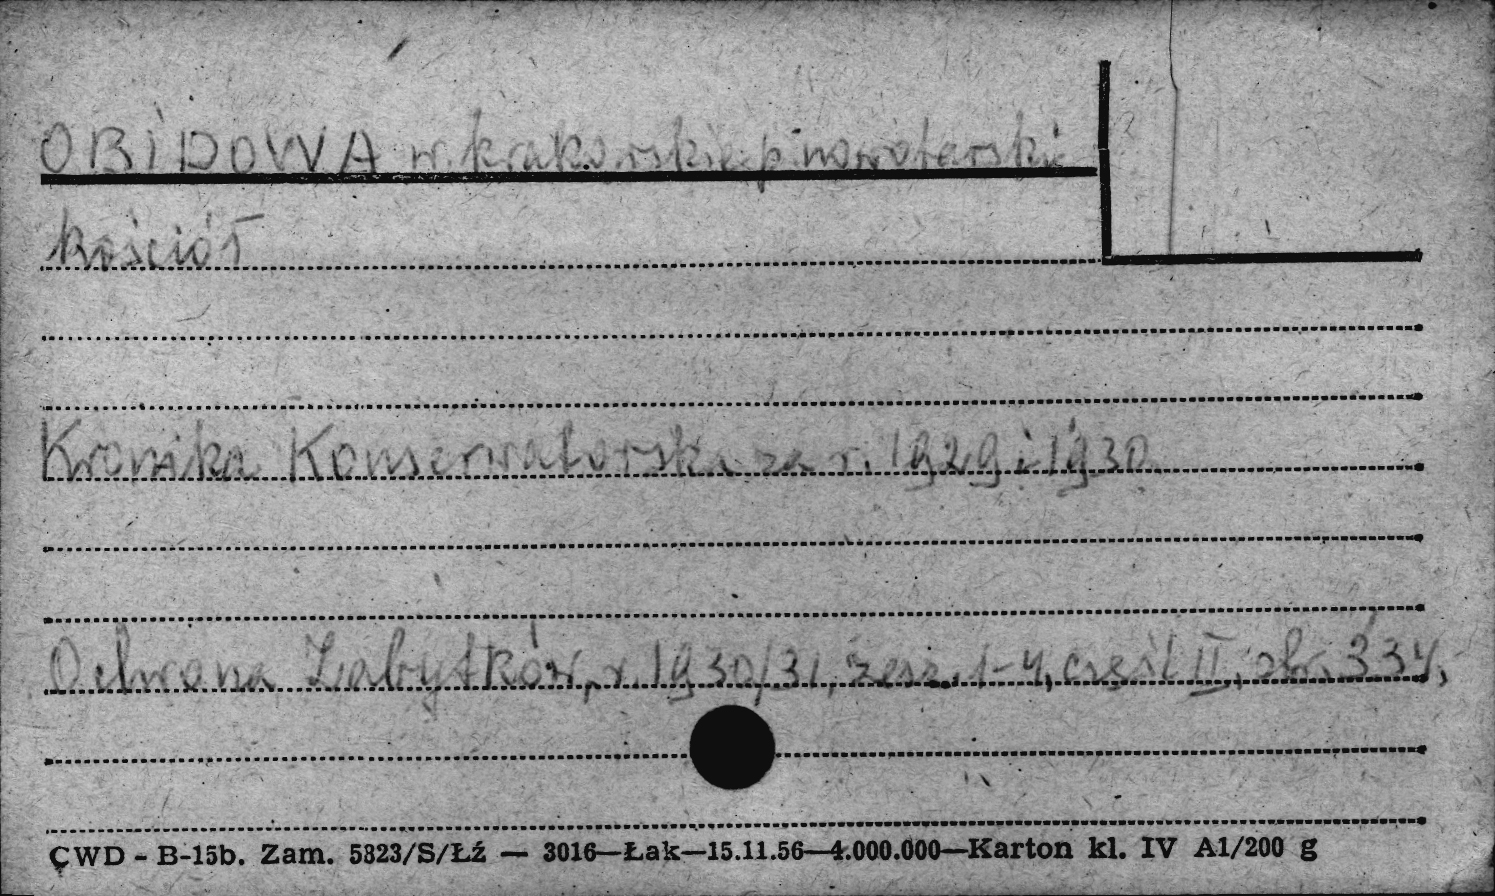 OBIDOWA w. krakowskie p. nowotarski
kościół
Kronika Konserwatorska za r. 1929 i 1930
Ochrona Zabytków, r. 1930/31, zesz. 1-4, część II, str. 334,
CWD - B-15b. Zam. 5823/S/Łź — 3016—Łak—15.11.56—4.000.000—Karton kl. IV A1/200 g